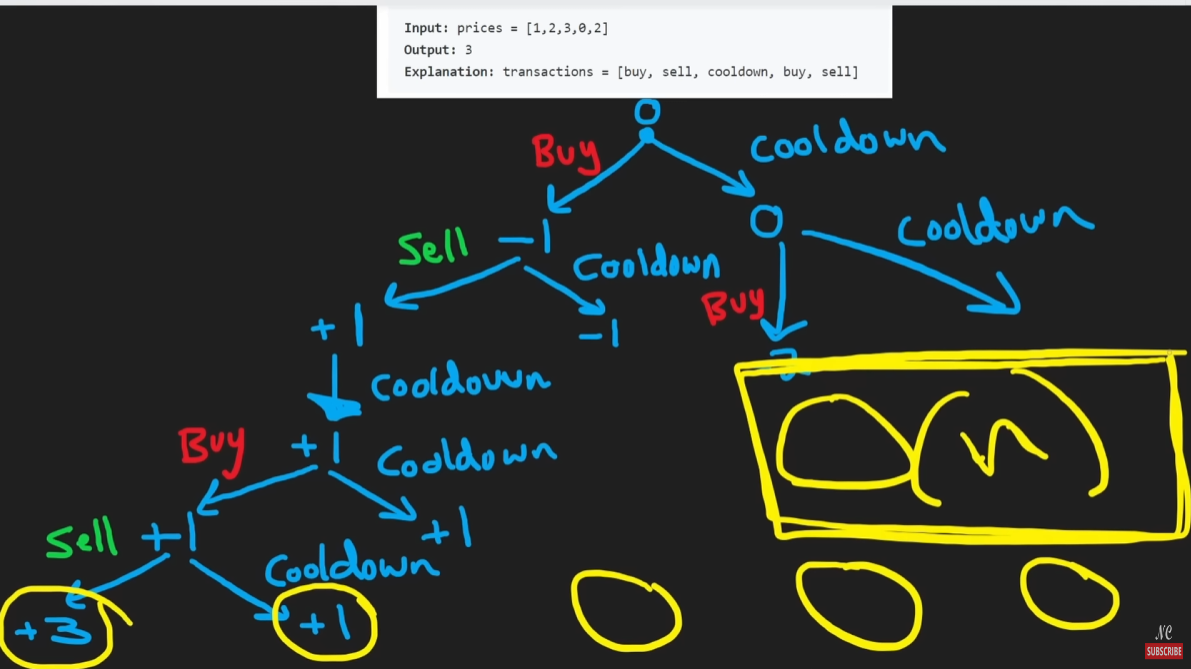 Input: prices = [1,2,3,0,2]
Output: 3
Explanation: transactions = [buy, sell, cooldown, buy, sell]
0
Buy
Cooldown
Sell
-1
Cooldown
0
Cooldown
Buy
+1
-1
Cooldown
Buy
+1
Cooldown
O(n)
Sell
+1
Cooldown
+1
+3
+1
NC
SUBSCRIBE